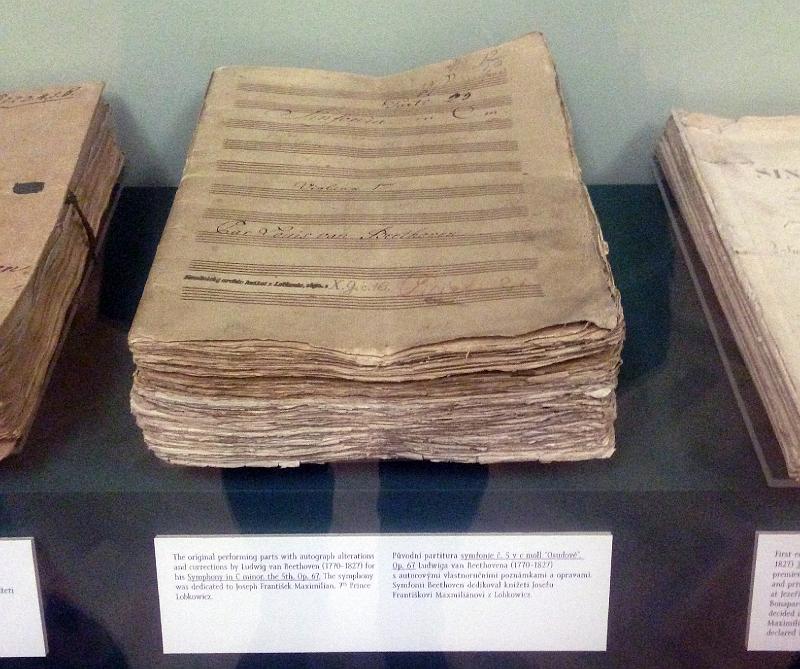 Sinfonia in C m
Violino 1mo
Par Louis van Beethoven
X. G. c. 16.
The original performing parts with autograph alterations
and corrections by Ludwig van Beethoven (1770-1827) for
his Symphony in C minor, the 5th, Op. 67. The symphony
was dedicated to Joseph František Maximilian, 7th Prince
Lobkowicz.
Původní partitura symfonie č. 5 v c moll "Osudové",
Op. 67 Ludwiga van Beethovena (1770-1827)
s autorovými vlastnoručními poznámkami a opravami.
Symfonii Beethoven dedikoval knížeti Josefu
Františkovi Maxmiliánovi z Lobkowicz.
SIN
First e
1827)
premie
and pri
at Jezeř
Bonapar
decided
Maximili
declared